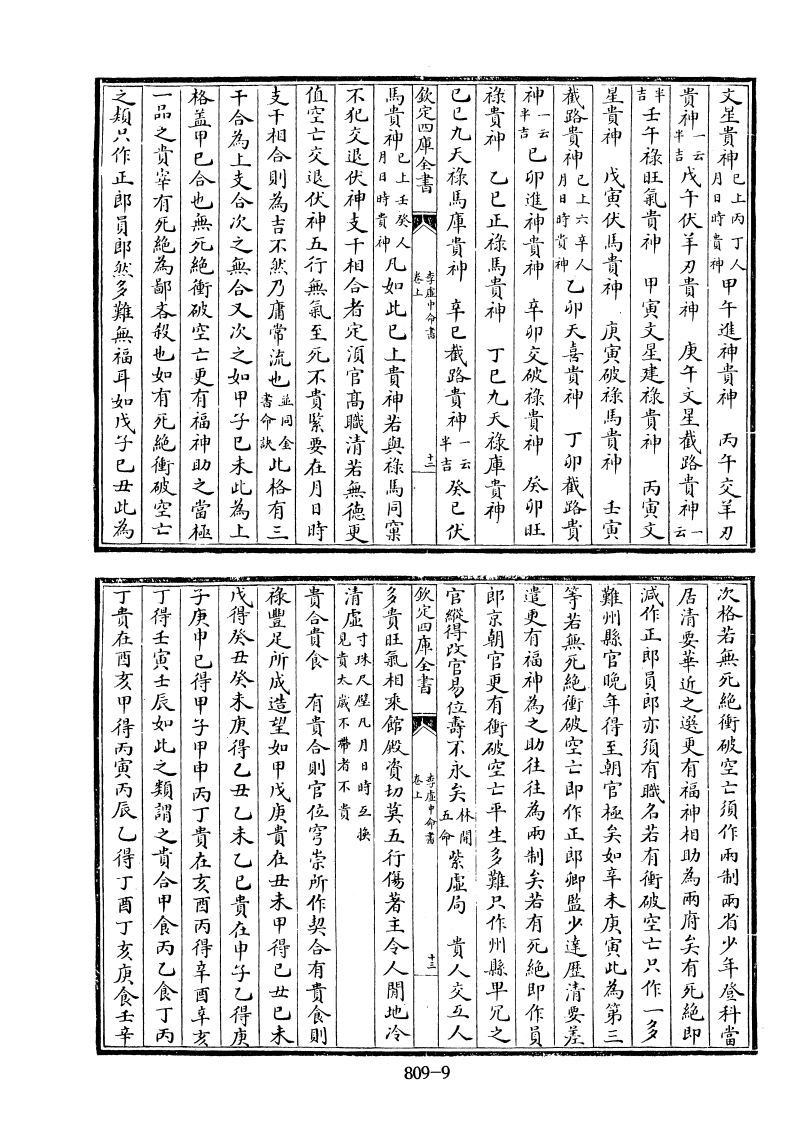 文星貴神已上丙丁人月日時貴神甲午進神貴神　丙午交羊刃
貴神一云半吉戊午伏羊刃貴神　庚午文星截路貴神一云
半吉壬午祿旺氣貴神　甲寅文星建祿貴神　丙寅文
星貴神　戊寅伏馬貴神　庚寅破祿馬貴神　壬寅
截路貴神已上六辛人月日時貴神乙卯天喜貴神　丁卯截路貴
神一云半吉已卯進神貴神　辛卯交破祿貴神　癸卯旺
祿貴神　乙巳正祿馬貴神　丁巳九天祿庫貴神
已巳九天祿馬庫貴神　辛巳截路貴神一云半吉癸巳伏
欽定四庫全書　李虛中命書卷上　十二
馬貴神已上壬癸人月日時貴神凡如此已上貴神若與祿馬同窠
不犯交退伏神支干相合者定須官髙職清若無德更
值空亡交退伏神五行無氣至死不貴緊要在月日時
支干相合則為吉不然乃庸常流也並同金書命訣此格有三
干合為上支合次之無合又次之如甲子已未此為上
格盖甲巳合也無死絕衝破空亡更有福神助之當極
一品之貴宰有死絕為鄙吝殺也如有死絕衝破空亡
之類只作正郎員郎然多難無福耳如戊子已丑此為
次格若無死絕衝破空亡須作兩制兩省少年登科當
居清要華近之選更有福神相助為兩府矣有死絕即
減作正郎員郎亦須有職名若有衝破空亡只作一多
難州縣官晚年得至朝官極矣如辛未庚寅此為第三
等若無死絕衝破空亡即作正郎卿監少達歷清要差
遣更有福神為之助往往為兩制矣若有死絕即作員
郎京朝官更有衝破空亡平生多難只作州縣卑冗之
官縱得改官易位壽不永矣林開五命紫虛局　貴人交互人
欽定四庫全書　李虛中命書卷上　十三
多貴旺氣相乘館殿資切莫五行傷著主令人閒地冷
清虛寸珠尺璧凡月日時互換見貴太歲不帶者不貴
貴合貴食　有貴合則官位穹崇所作契合有貴食則
祿豐足所成造望如甲戊庚貴在丑未甲得已丑已未
戊得癸丑癸未庚得乙丑乙未乙巳貴在申子乙得庚
子庚申已得甲子甲申丙丁貴在亥酉丙得辛酉辛亥
丁得壬寅壬辰如此之類謂之貴合甲食丙乙食丁丙
丁貴在酉亥甲得丙寅丙辰乙得丁酉丁亥庚食壬辛
809-9